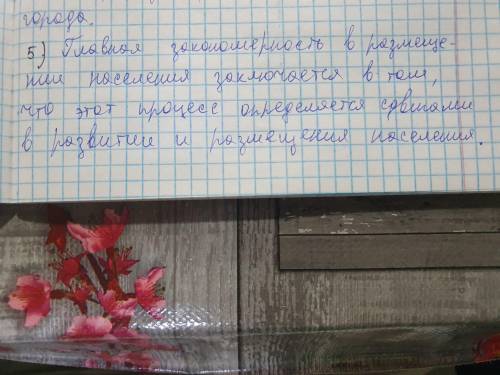 города.
5) Главная закономерность в размеще-
нии населения заключается в том,
что этот процесс определяется сдвигами
в развитии и размещения населения.